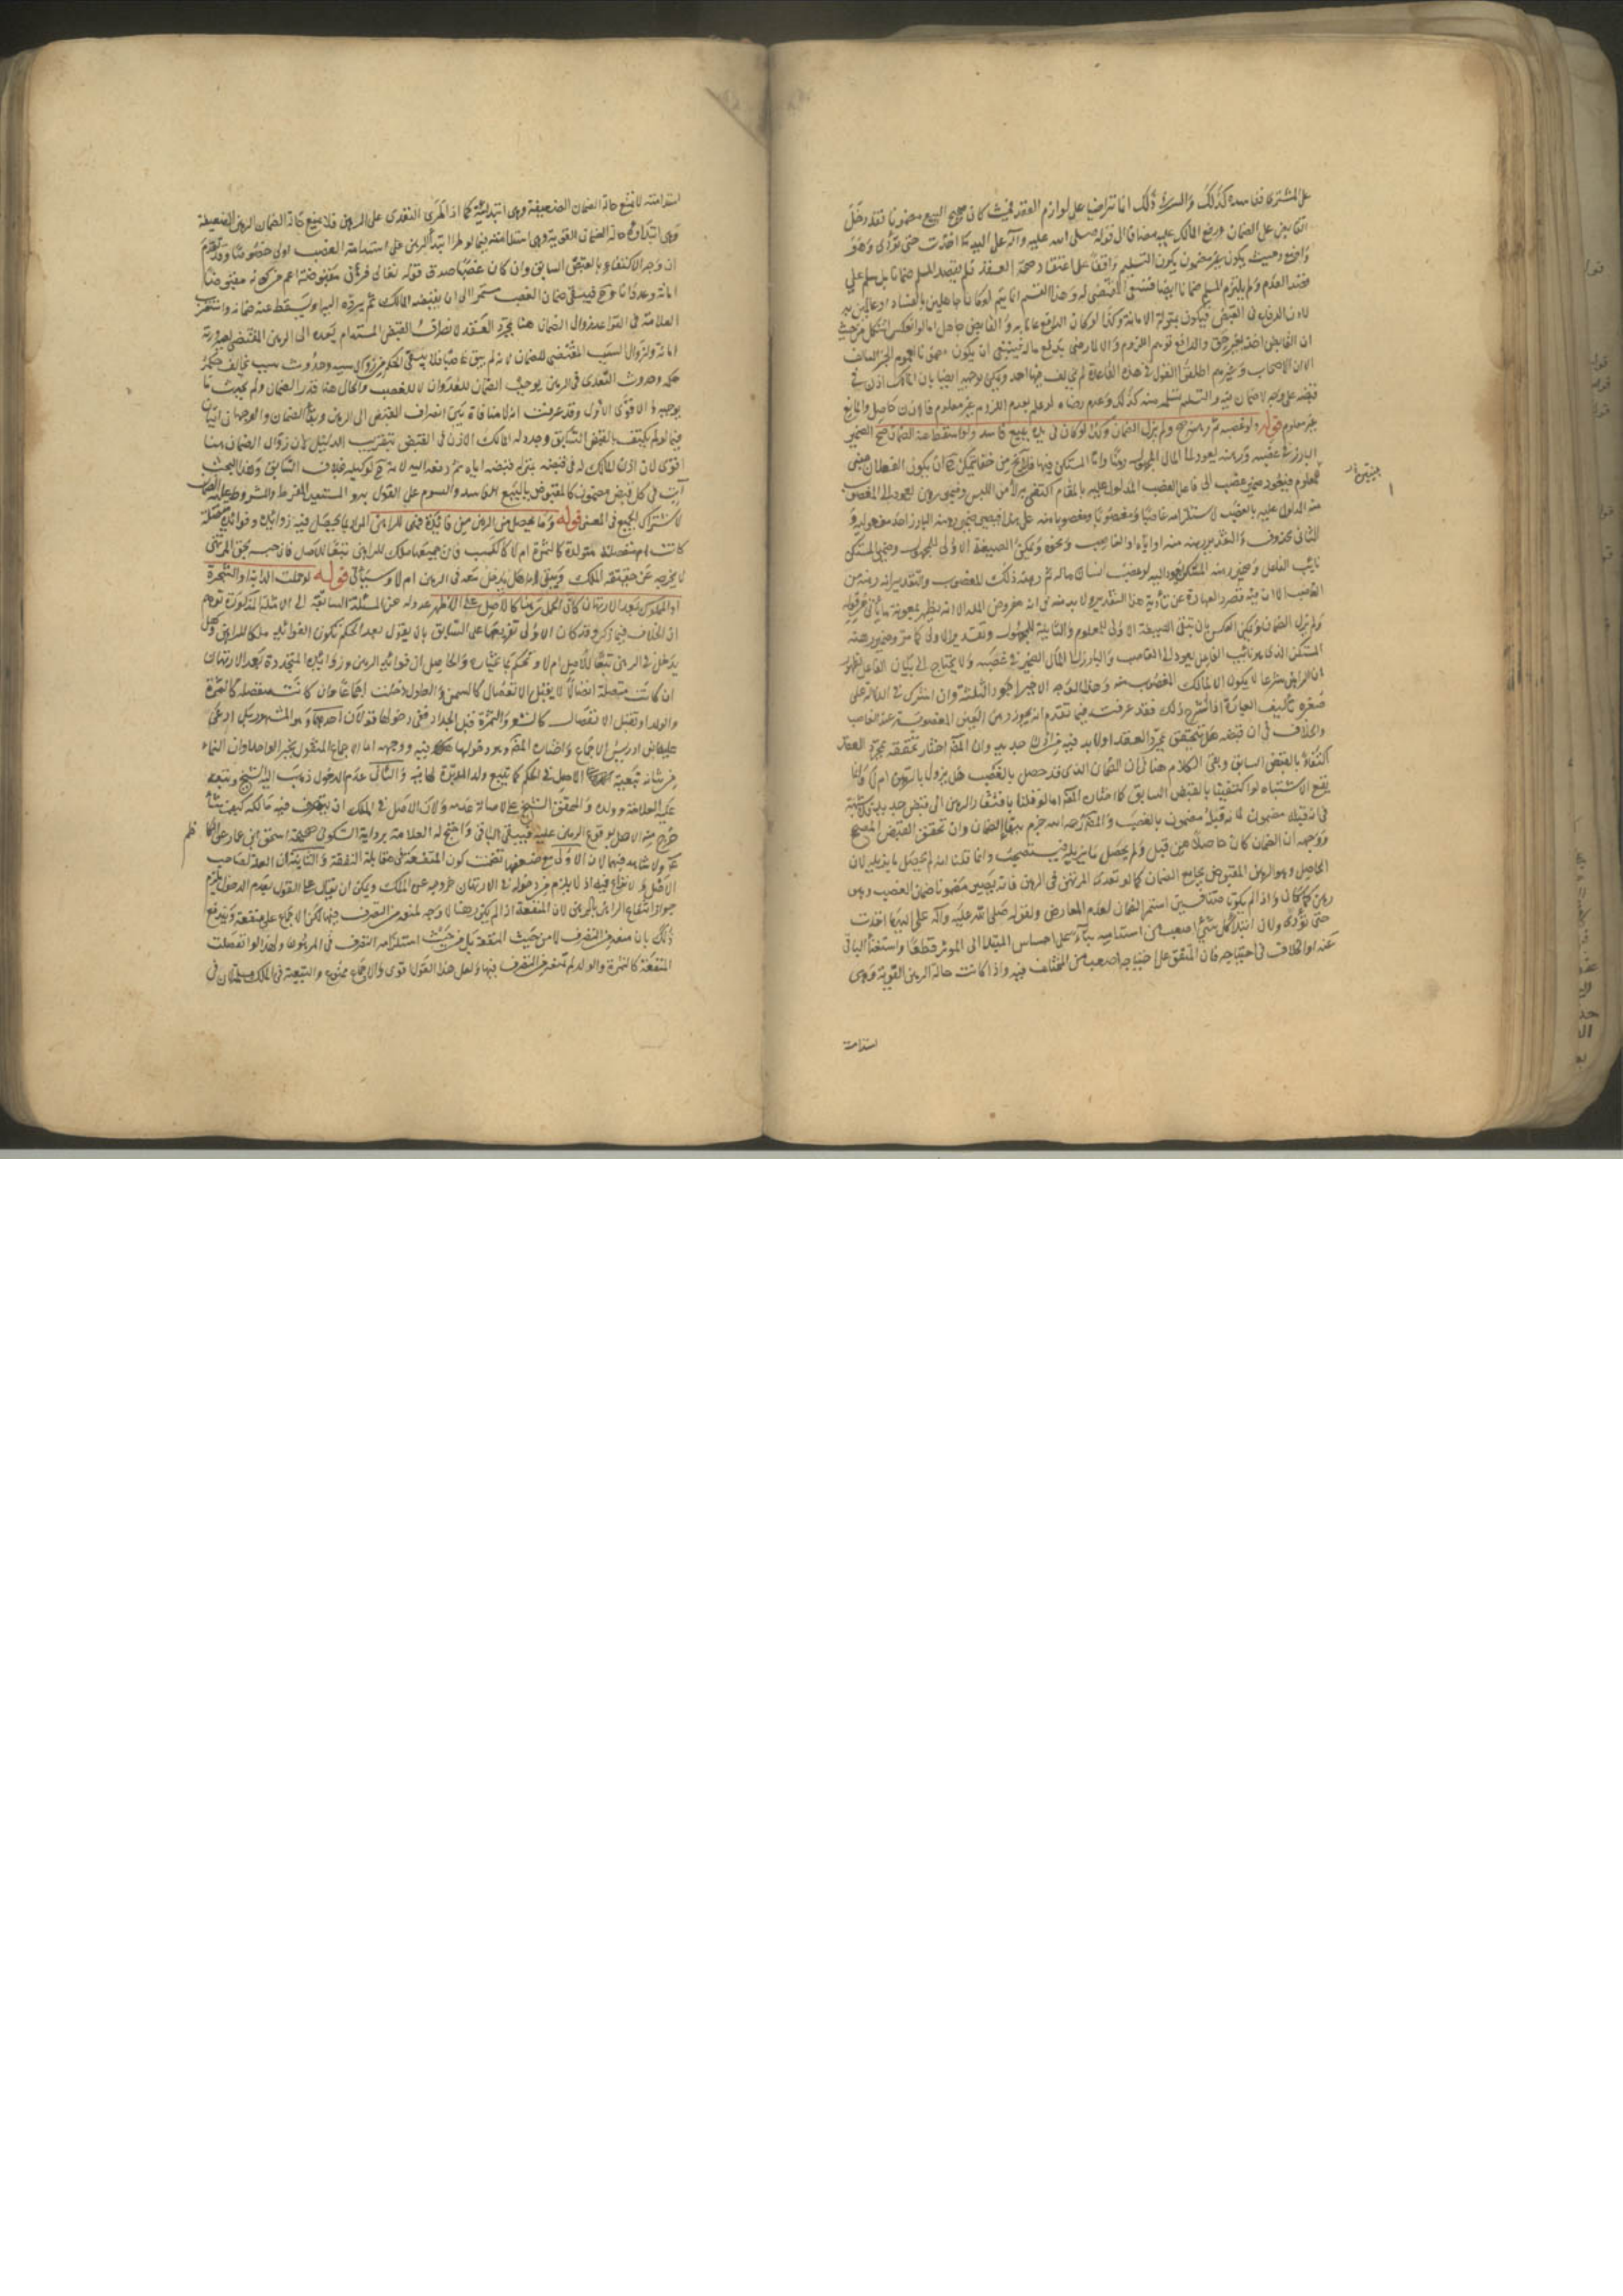 على المشترى ففاسده كذلك والسر فى ذلك انما تراضيا على لوازم العقد فحيث كان صحيح البيع مضمونا فقد دخل
القابض على الضمان ودفع المالك عليه مضافا الى قوله صلى الله عليه وآله على اليد ما اخذت حتى تؤدى وهو
واضح وحيث يكون غير مضمون يكون التسليم واقعا على اعتقاد صحة العقد فلم يقصد المسلم ضمانا بل سلم على
قصد العدم ولم يلتزم المتسلم ضمانا ايضا فينتفى المقتضى له وهذا القسم انما يتم لو كانا جاهلين بالفساد او عالمين به
للاذن الدفاعى فى القبض فيكون بمنزلة الامانة وكذا لو كان الدافع عالما به والقابض جاهل اما لو انعكس اشكل من حيث
ان القابض اخذ بغير حق والدافع توهم اللزوم والا لما رضى بدفع ماله فينبغى ان يكون مضمونا لعموم الخبر السالف
الا ان الاصحاب وغيرهم اطلقوا القول فى هذه القاعدة لم يخالف فيها احد ويمكن توجيهه ايضا بان المالك اذن فى
قبضه على وجه لا ضمان فيه والمتسلم تسلمه منه كذلك وعدم رضاه لو علم بعدم اللزوم غير معلوم فالاذن حاصل والمانع
غير معلوم قوله ولو غصبه ثم رهنه صح ولم يزل الضمان وكذا لو كان فى يده ببيع فاسد ولو اسقط عنه الضمان صح الضمير
البارز فى غصبه ورهنه يعود الى المال المجعول رهنا واما المستكن فيهما فلا يخ من خفا فيمكن ان يكون الفعلان مبنى
للمعلوم فيعود ضمير غصب الى فاعل الغصب المدلول عليه بالمقام اكتفى به لامن اللبس وضمير رهن يعود الى المغصوب
منه المدلول عليه بالغصب لاستلزامه غاصبا ومغصوبا ومغصوبا منه
الثانى محذوف والتقدير رهنه منه او اياه او الغاصب ونحوه ويمكن الصيغة الاولى للمجهول وضمير المستكن
نائب الفاعل وضمير رهنه المستكن يعود اليه لو غصب انسان ماله ثم رهنه ذلك المغصوب والتقدير انه رهنه من
الغاصب الا ان فيه قصور العبارة عن تأدية هذا التقدير ولا بد منه
ولم يزل الضمان ويمكن العكس بان يبنى الصيغة الاولى للمعلوم والثانية للمجهول وتقدير الاولى كما مر وضمير رهنه
المستكن الذى هو نائب الفاعل يعود الى الغاصب والبارز الى المال الضمير فى غصبه ولا يحتاج الى بيان الفاعل لظهور
ان الراهن شرعا لا يكون الا لمالك المغصوب منه وهذا الوجه الاخير اجود الثلثة وان اشترك فى الدلالة على
ضعف تأليف العبارة اذا تقرر ذلك فقد عرفت فيما تقدم انه يجوز رهن العين المغصوبة عند الغاصب
والخلاف فى ان قبضه هل يتحقق بمجرد العقد او لا بد فيه من اذن جديد وان المصنف اختار تحققه بمجرد العقد
اكتفاء بالقبض السابق وبقى الكلام هنا فى ان الضمان الذى قد حصل بالغصب هل يزول بالرهن ام لا وانما
يقع الاشتباه لو اكتفينا بالقبض السابق كما اختاره المصنف اما لو قلنا بافتقار الرهن الى قبض جديد فلا شبهة
فى انه قبله مضمون لانه قبله مضمون بالغصب والمصنف رحمه الله جزم ببقاء الضمان وان تحقق القبض المصحح
ووجهه ان الضمان كان حاصلا من قبل ولم يحصل ما يزيله فيستصحب وانما قلنا انه لم يحصل ما يزيله لان
الحاصل وهو الرهن المقبوض يجامع الضمان كما لو تعدى المرتهن فى الرهن فانه يصير مضمونا ضمان الغصب وهو
رهن كما كان واذا لم يكونا متنافيين استمر الضمان لعدم المعارض ولقوله صلى الله عليه وآله على اليد ما اخذت
حتى تؤدى ولان ابتداء كل شئ اضعف من استدامته بناء على احتياج المبتدا الى الموثر قطعا واستغناء الباقى
عنه او الخلاف فى احتياجه فان المتفق على احتياجه اضعف من المختلف فيه واذا كانت حالة الرهن القوية وهى
استدامة
استدامته لا تمنع حالة الضمان الضعيفة وهى ابتداؤه كما اذا طرى التعدى على الرهن فلا يمنع حالة الضمان الرهن الضعيفة
وهى ابتداؤه حالة الضمان القوية وهى استدامته فيما لو طرا ابتداء الرهن على استدامة الغصب اولى خصوصا وقد تقدم
ان وجه الاكتفاء بالقبض السابق وان كان غصبا صدق قوله تعالى فرهن مقبوضة اعم من كونه مقبوضا
امانة وعدوانا وح فيبقى ضمان الغصب مستمرا الى ان يقبضه المالك ثم يرده اليه او يسقط عنه ضمانه واستقرب
العلامة فى القواعد زوال الضمان هنا بمجرد العقد لانصراف القبض المستدام بعده الى الرهن المقتضى لصيرورته
امانة ولزوال السبب المقتضى للضمان لانه لم يبق غاصبا فلا يبقى الحكم مع زوال سببه وحدوث سبب يخالف حكمه
حكمه وحدوث التعدى فى الرهن يوجب الضمان للعدوان لا للغصب والحال هنا قدر الضمان ولم يحدث ما
يوجبه والاقوى الاول وقد عرفت انه لا منافاة بين انصراف القبض الى الرهن وبقاء الضمان والوجهان اتيان
فيما لو لم يكتف بالقبض السابق وجدد له المالك الاذن فى القبض بتقريب الدليل لان زوال الضمان هنا
اقوى لان اذن المالك له فى قبضه بمنزلة قبضه اياه ثم دفعه اليه لانه ح كوكيله بخلاف السابق وهذا البحث
آت فى كل قبض مضمون كالمقبوض بالبيع الفاسد والسوم على القول به والمستعير المفرط والمشروط عليه الضمان
لاشتراك الجميع فى المعنى قوله وما يحصل من الرهن من فائدة فهى للراهن المراد بما يحصل فيه زوائده وفوائده متصلة
كانت ام منفصلة متولدة كالثمرة ام لا كالكسب فان جميعها ملك للراهن تبعا للاصل فان حبسه بحق المرتهن
لا يخرجه عن حقيقة الملك ويبقى الامر هل يدخل معه فى الرهن ام لا وسيأتى قوله لو حملت الدابة او الشجرة
او المملوك بعد الارتهان كان الحمل رهنا كالاصل على الاظهر عدوله عن المسئلة السابقة الى الامثلة المذكورة توهم
ان الخلاف فيما ذكر وقد كان الاولى تفريعها على السابق بان يقول بعد الحكم بكون الفوائد ملكا للراهن وهل
يدخل فى الرهن تبعا للاصل ام لا ونحكم بما يختاره والحاصل ان فوائد الرهن وزوائده المتجددة بعد الارتهان
ان كانت متصلة اتصالا لا يقبل الانفصال كالسمن والطول دخلت اجماعا وان كانت منفصلة كالثمرة
والولد او تقبل الانفصال كالشعر والثمرة قبل الجذاذ ففى دخولها قولان احدهما وهو المشهور بل ادعى
عليه ابن ادريس الاجماع واختاره المصنف وهو دخولها فيه ووجهه اما الاجماع المنقول بخبر الواحد او ان النماء
من شانه تبعية الاصل فى الحكم كما يتبع ولد المدبرة لها فيه والثانى عدم الدخول ذهب اليه الشيخ وتبعه
عليه العلامة وولده والمحقق الشيخ على لاصالة عدمه ولان الاصل فى الملك ان يتصرف فيه مالكه كيف شاء
خرج منه الاصل بوقوع الرهن عليه فيبقى الباقى واحتج له العلامة برواية السكونى وصحيحة اسحق بن عمار عن الكاظم
ع ولا شاهد فيهما لان الاولى مع ضعفها تضمنت كون المنفعة فى مقابلة النفقة والثانية ان الغلة لصاحب
الاصل ولا نزاع فيه اذ لا يلزم من دخوله فى الارتهان خروجه عن الملك ويمكن ان يقال على القول بعدم الدخول يلزم
جواز انتفاع الراهن بالرهن لان المنفعة اذا لم يكن رهنا لا وجه لمنعه من التصرف فيها لكن الاجماع على منعه ويندفع
ذلك بان منعه من التصرف لا من حيث المنفعة بل من حيث استلزامه التصرف فى المرهون ولهذا لو انفصلت
المنفعة كالثمرة والولد لم يمنع من التصرف فيها ولعل هذا القول اقوى والاجماع ممنوع والتبعية فى الملك مسلمة لان فى